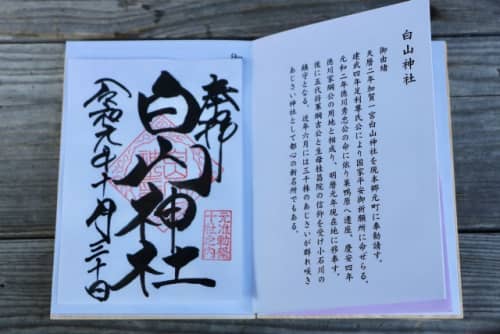 奉拝
白山神社
令和元年十月三十日
元准勅祭
十社之内
白山神社
御由緒
天暦二年加賀一宮白山神社を現本郷元町に奉勧請す。
建武四年足利尊氏公により国家平安御祈願所に命ぜらる。
元和二年徳川秀忠公の命に依り巣鴨原へ遷座、慶安四年
徳川家綱公の用地と相成り、明暦元年現在地に移奉す。
後に五代将軍綱吉公と生母桂昌院の信仰を受け小石川の
鎮守となる。近年六月には三千株のあじさいが群れ咲き
あじさい神社として都心の新名所でもある。